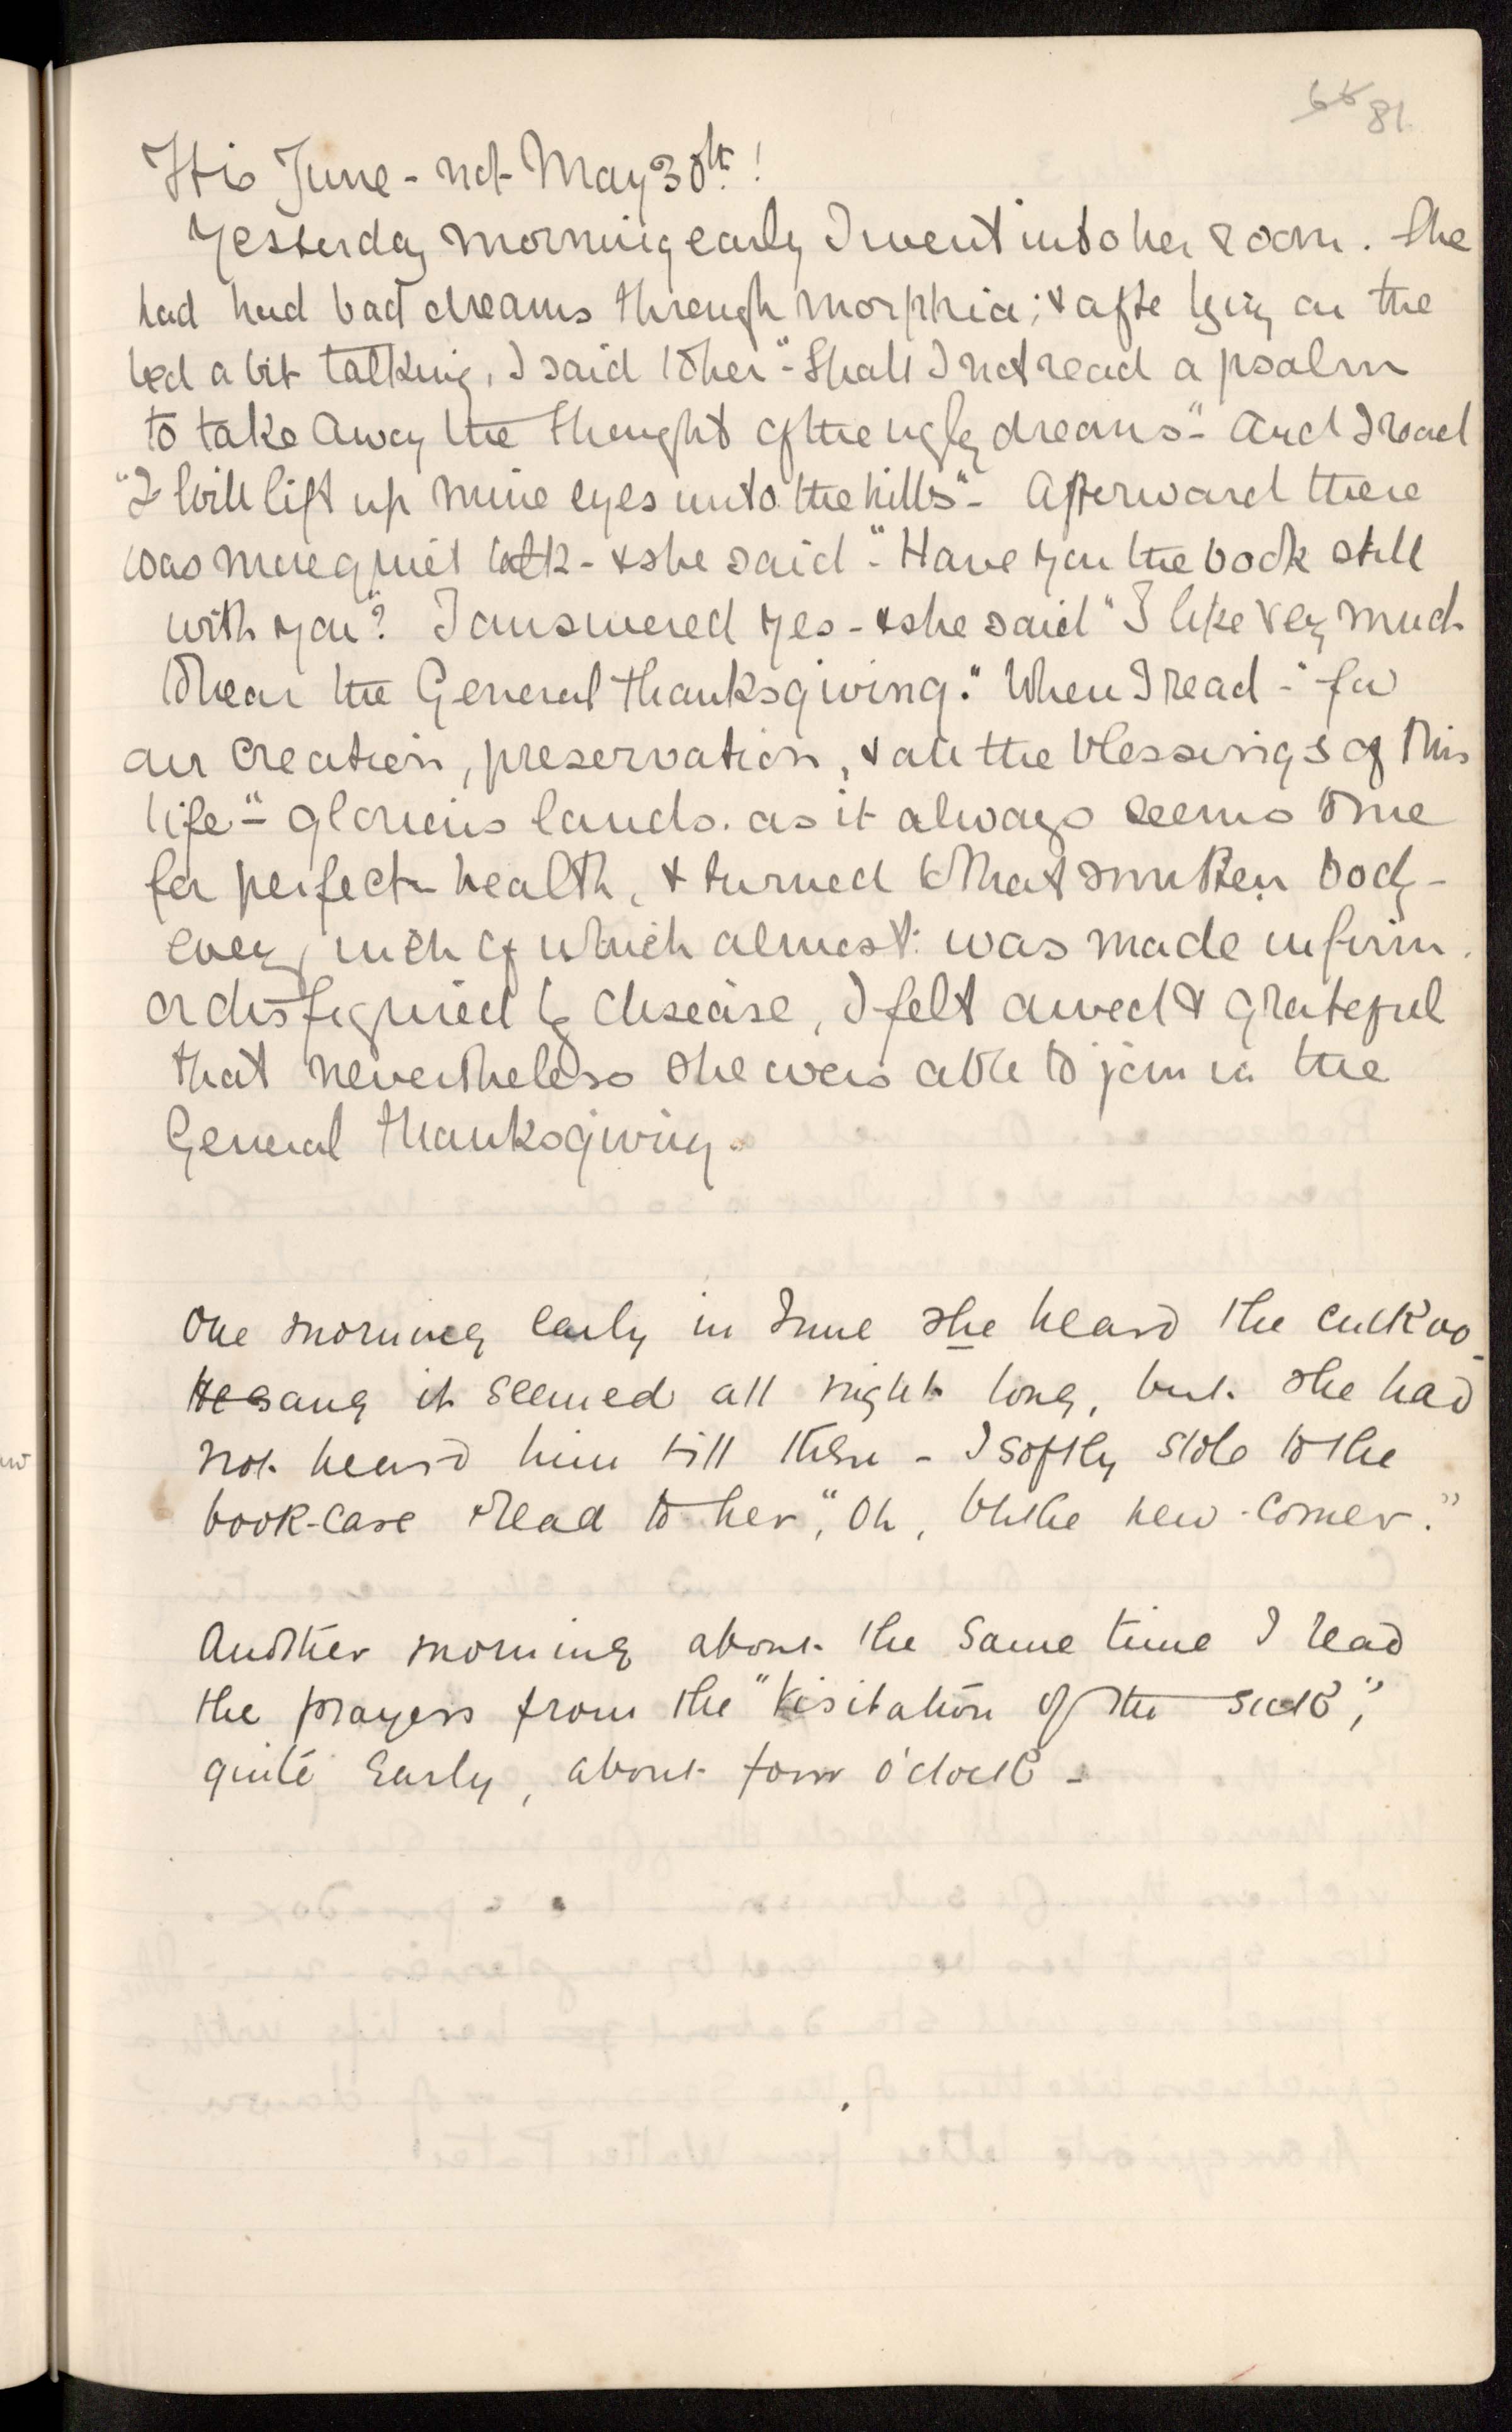 65 81
It is June - not May 30th!
Yesterday morning early I went into her room. She
had had bad dreams through morphia; & after lying on the
bed a bit talking, I said to her "Shall I not read a psalm
to take away the thought of the ugly dreams" - And I read
"I will lift up mine eyes unto the hills" - Afterward there
was more quiet talk - & she said "Have you the book still
with you"? I answered yes - & she said "I like very much
to hear the General Thanksgiving." When I read - "for
our creation, preservation, & all the blessings of this
life" - glorious lauds. as it always seems to me
for perfect health, & turned to that smitten body -
every inch of which almost was made infirm
or disfigured by disease, I felt awed & grateful
that nevertheless she was able to join in the
General Thanksgiving.
One morning early in June she heard the cuckoo -
He sang it seemed all night long, but she had
not heard him till then - I softly stole to the
book-case & read to her, "Oh, blithe new-comer."
Another morning about the same time I read
the prayers from the "Visitation of the sick",
quite early, about four o'clock -